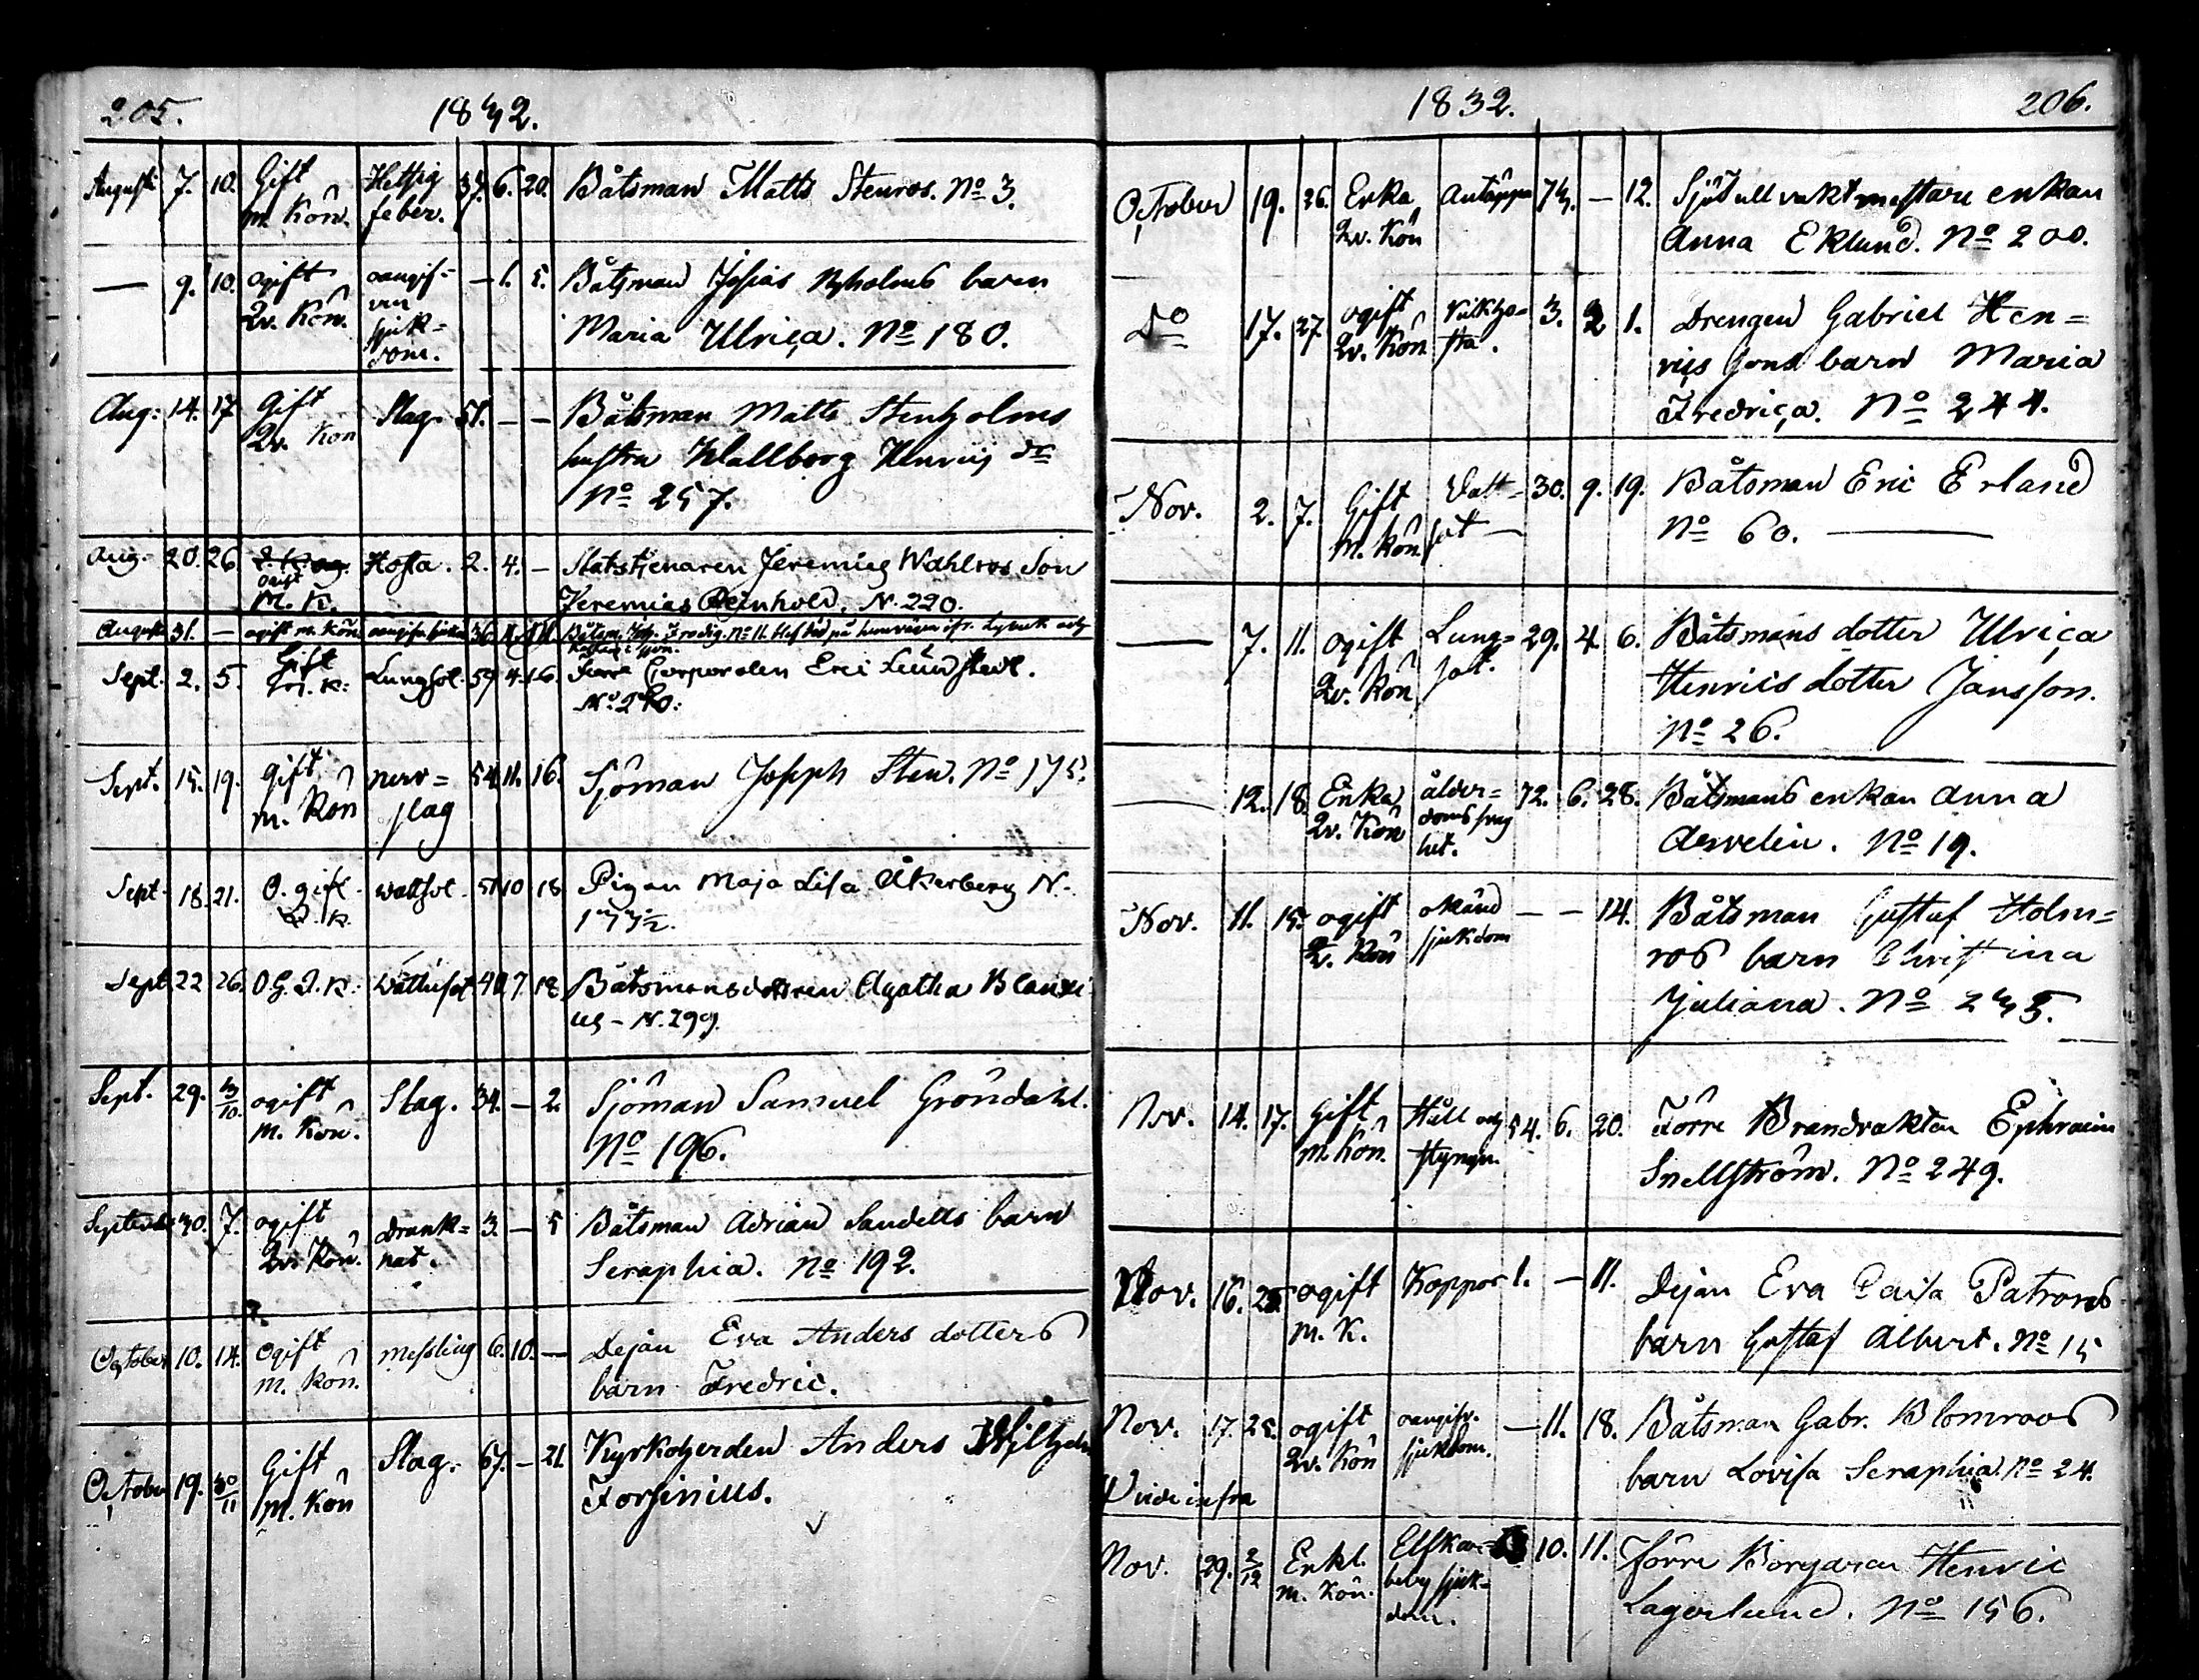 205. 1832.
Augusti 7. 10. Gift Hettsig 37. 6. 20. Båtsman Matts Stenros. No 3.
m. Kön. feber.
— 9. 10. ogift oangif= — 1. 5. Båtsman Josias Nyholms barn
Qv. Kön. ven Maria Ulrica. No 180.
sjuk=
dom.
Aug: 14. 17 Gift Slag. 51. — — Båtsman Matts Stenholms
Qv. Kön hustru Wallborg Henrics dr
No 257.
Aug. 20. 26 Hosta. 2. 4. — Statstjenaren Jeremias Wahlros Son
ogift
M. K. Jeremias Reinhold. N. 220.
Augusti 31. — ogift m. Kön 36. Båtsm. No 11. blef död på hemvägen ifr. Lybeck
Sept. 2. 5. Gift Lungsot. 59 4. 16. Corporalen Eric Lundstedt.
M. K. No 240.
Sept. 15. 19. Gift nerv= 54 11. 16. Sjöman Joseph Sten. No 175.
m. Kön slag
Sept. 18. 21. O. gift. Wattsot. 51 10 18 Pigan Maja Lisa Åkerberg N.
Q. K.
Sept 22 26. O.G. Q. K. Wattusot 40 7. 18 Båtsmansdottren Agatha Blanxi
us – N. 299.
Sept. 29. 3/10. ogift Slag. 34. — 2. Sjöman Samuel Gröndahl.
m. Kön. No 196.
September 30. 7. ogift drunk= 3. — 5 Båtsman Adrian Sandells barn
Qv. Kön. nat. Seraphia. No 192.
October 10. 14. Ogift Messling 6. 10. — Dejan Eva Anders dotters
m. Kön. barn Fredric.
October 19. 30/11 Gift Slag. 67. — 21 Kyrkoherden Anders Wilhelm
m. Kön Forsinius.
1832. 206.
October 19. 26. Enka Antäppa 74. — 12. Sjötull vaktmästare enkan
Qv. Kön Anna Eklund. No 200.
Do 17. 27. ogift Kikho= 3. 2 1. Drengen Gabriel Hen=
Qv. Kön sta. rics sons barn Maria
Fredrica. No 244.
Nov. 2. 7. Gift Vatt= 30. 9. 19. Båtsman Eric Erland
M. Kön sot — No 60. —
— 7. 11. ogift Lung= 29. 4. 6. Båtsmans dotter Ulrica
Qv. Kön sot. Henrics dotter Jansson.
No 26.
— 12. 18 Enka ålder= 72. 6. 28. Båtsmans enkan Anna
Qv. Kön doms svag Asvelin. No 19.
het.
Nov. 11. 15. ogift okänd — — 14. Båtsman Gustaf Holm=
Q. Kön sjukdom ros barn Christina
Juliana. No 235.
Nov. 14. 17. Gift Håll och 54. 6. 20. Förre Brandvakten Ephraim
m. Kön. styngn. Snellström. No 249.
Nov. 16. 25. ogift Koppor 1. — 11. Dejan Eva Caisa Patrons
m. K. barn Gustaf Albert. No 15
Nov. 17. 25. ogift oangifv. — 11. 18. Båtsman Gabr. Blomroos
Qv. Kön sjukdom. barn Lovisa Seraphia. No 24.
Vide infra
Nov. 29. 2/12 Enkl. 10. 11. Förre Borgaren Henric
m. Kön. sjuk= Lagerlund. No 156.
dom.